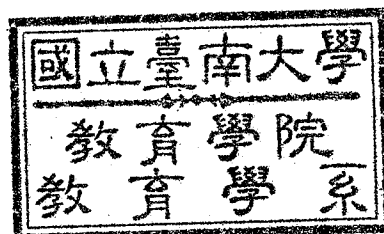 國立臺南大學
教育學院
教育學系